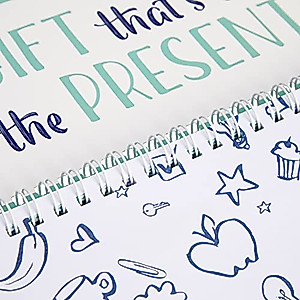 GIFT that's
the PRESENT